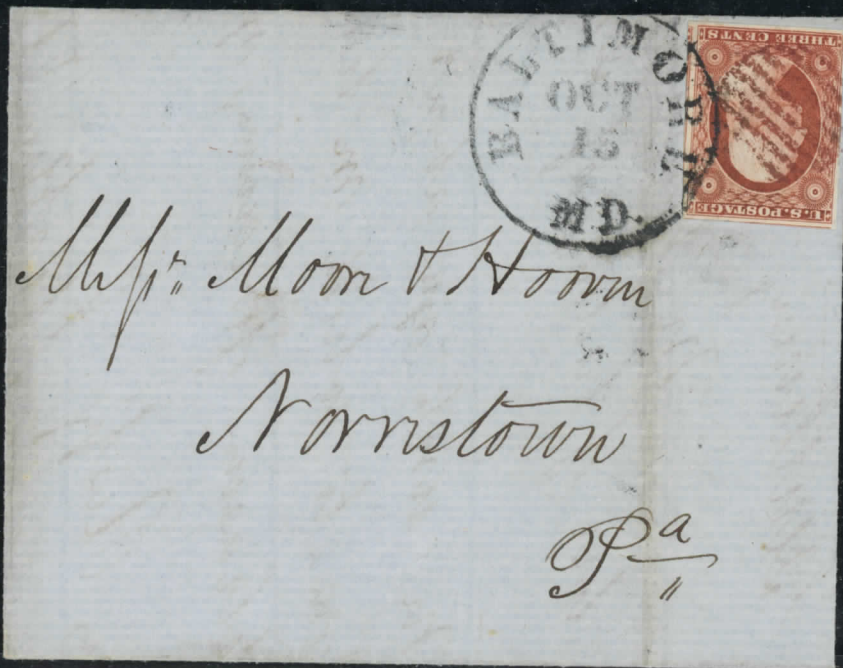 BALTIMORE
OCT
15
MD.
THREE CENTS
U.S. POSTAGE
Messrs. Moore & Hoover
Norristown
Pa